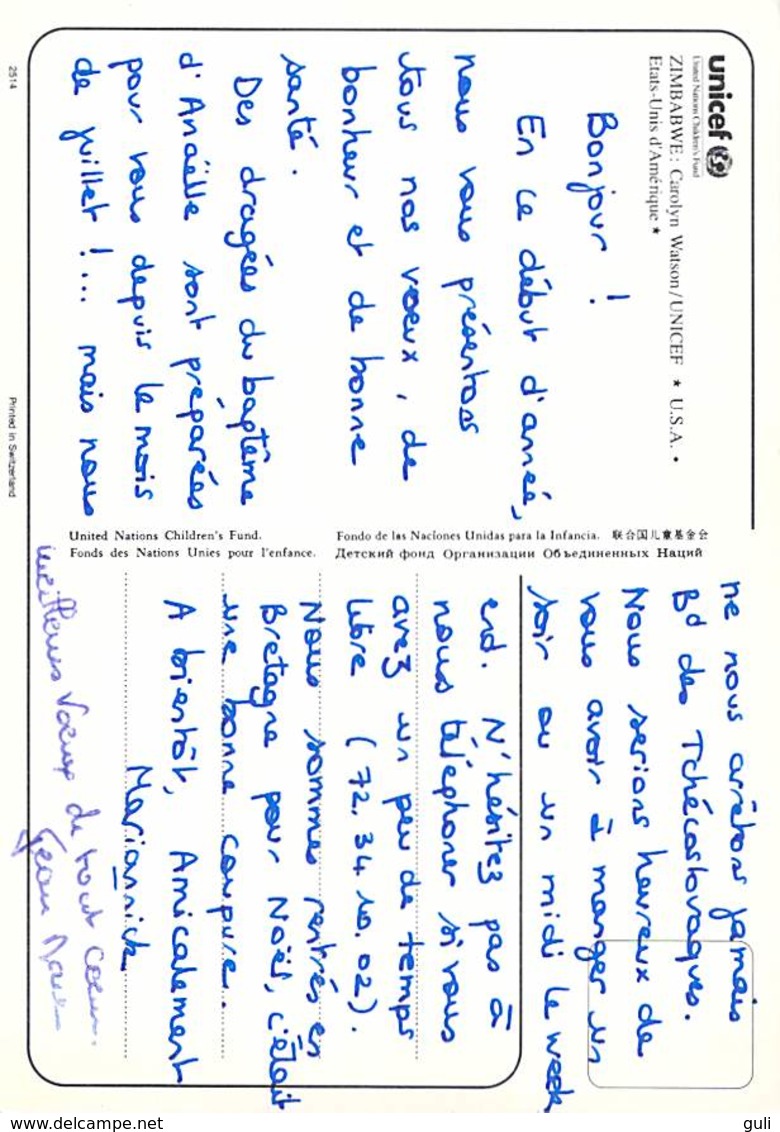 unicef
United Nations Children's Fund
ZIMBABWE: Carolyn Watson/UNICEF ★ U.S.A. •
Etats-Unis d'Amérique ★
Bonjour !
En ce début d'année,
nous vous présentons
tous nos voeux, de
bonheur et de bonne
santé.
Des dragées du baptême
d'Anaëlle sont préparées
pour vous depuis le mois
de juillet !... mais nous
ne nous arrêtons jamais
Bd des Tchécoslovaques.
Nous serions heureux de
vous avoir à manger un
soir ou un midi le week
end. N'hésitez pas à
nous téléphoner si vous
avez un peu de temps
libre (72.34.10.02).
Nous sommes rentrés en
Bretagne pour Noël, c'était
une bonne coupure.
A bientôt, Amicalement
Mariannick
meilleurs Voeux de tout coeur.
Jean
United Nations Children's Fund.
Fonds des Nations Unies pour l'enfance.
Fondo de las Naciones Unidas para la Infancia. 联合国儿童基金会
Детский фонд Организации Объединенных Наций
2514
Printed in Switzerland
www.delcampe.net
guli